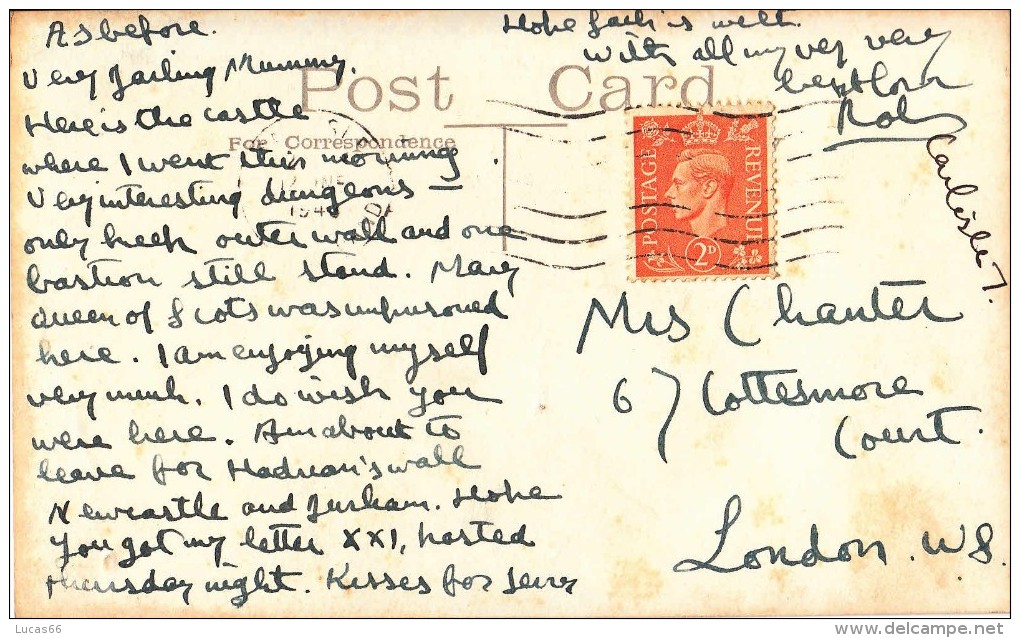 As before.
Very darling Mummy.
Here is the castle
where I went this morning.
Very interesting dungeons –
only keep outer wall and one
bastion still stand. Mary
Queen of Scots was imprisoned
here. I am enjoying myself
very much. I do wish you
were here. Am about to
leave for Hadrian's wall
Newcastle and Durham. Hope
you got my letter XXI, posted
Thursday night. Kisses for
Hope is well.
With all my very very
best love
Rob
Carlisle 7.
Post Card
For Correspondence
194
POSTAGE
REVENUE
2D
Mrs Chanter
67 Cottesmore
Court.
London. W8.
Lucas66
delcampe.net